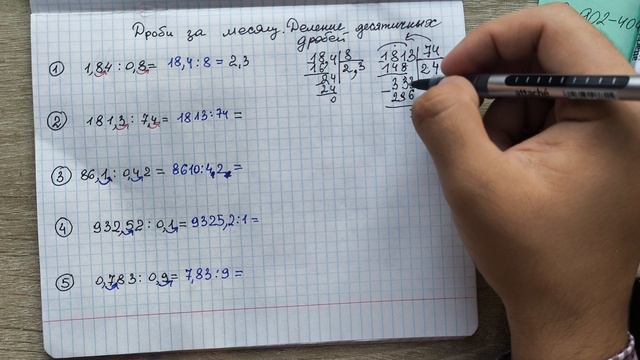 Дроби за месяц. Деление десятичных
дробей
① 1,84 : 0,8 = 18,4 : 8 = 2,3
② 181,3 : 7,4 = 1813 : 74 =
③ 86,1 : 0,42 = 8610 : 42 =
④ 932,52 : 0,1 = 9325,2 : 1 =
⑤ 0,783 : 0,9 = 7,83 : 9 =
18,4 8
16 2,3
24
24
0
1813 74
148 24
333
296
902-404
attaché